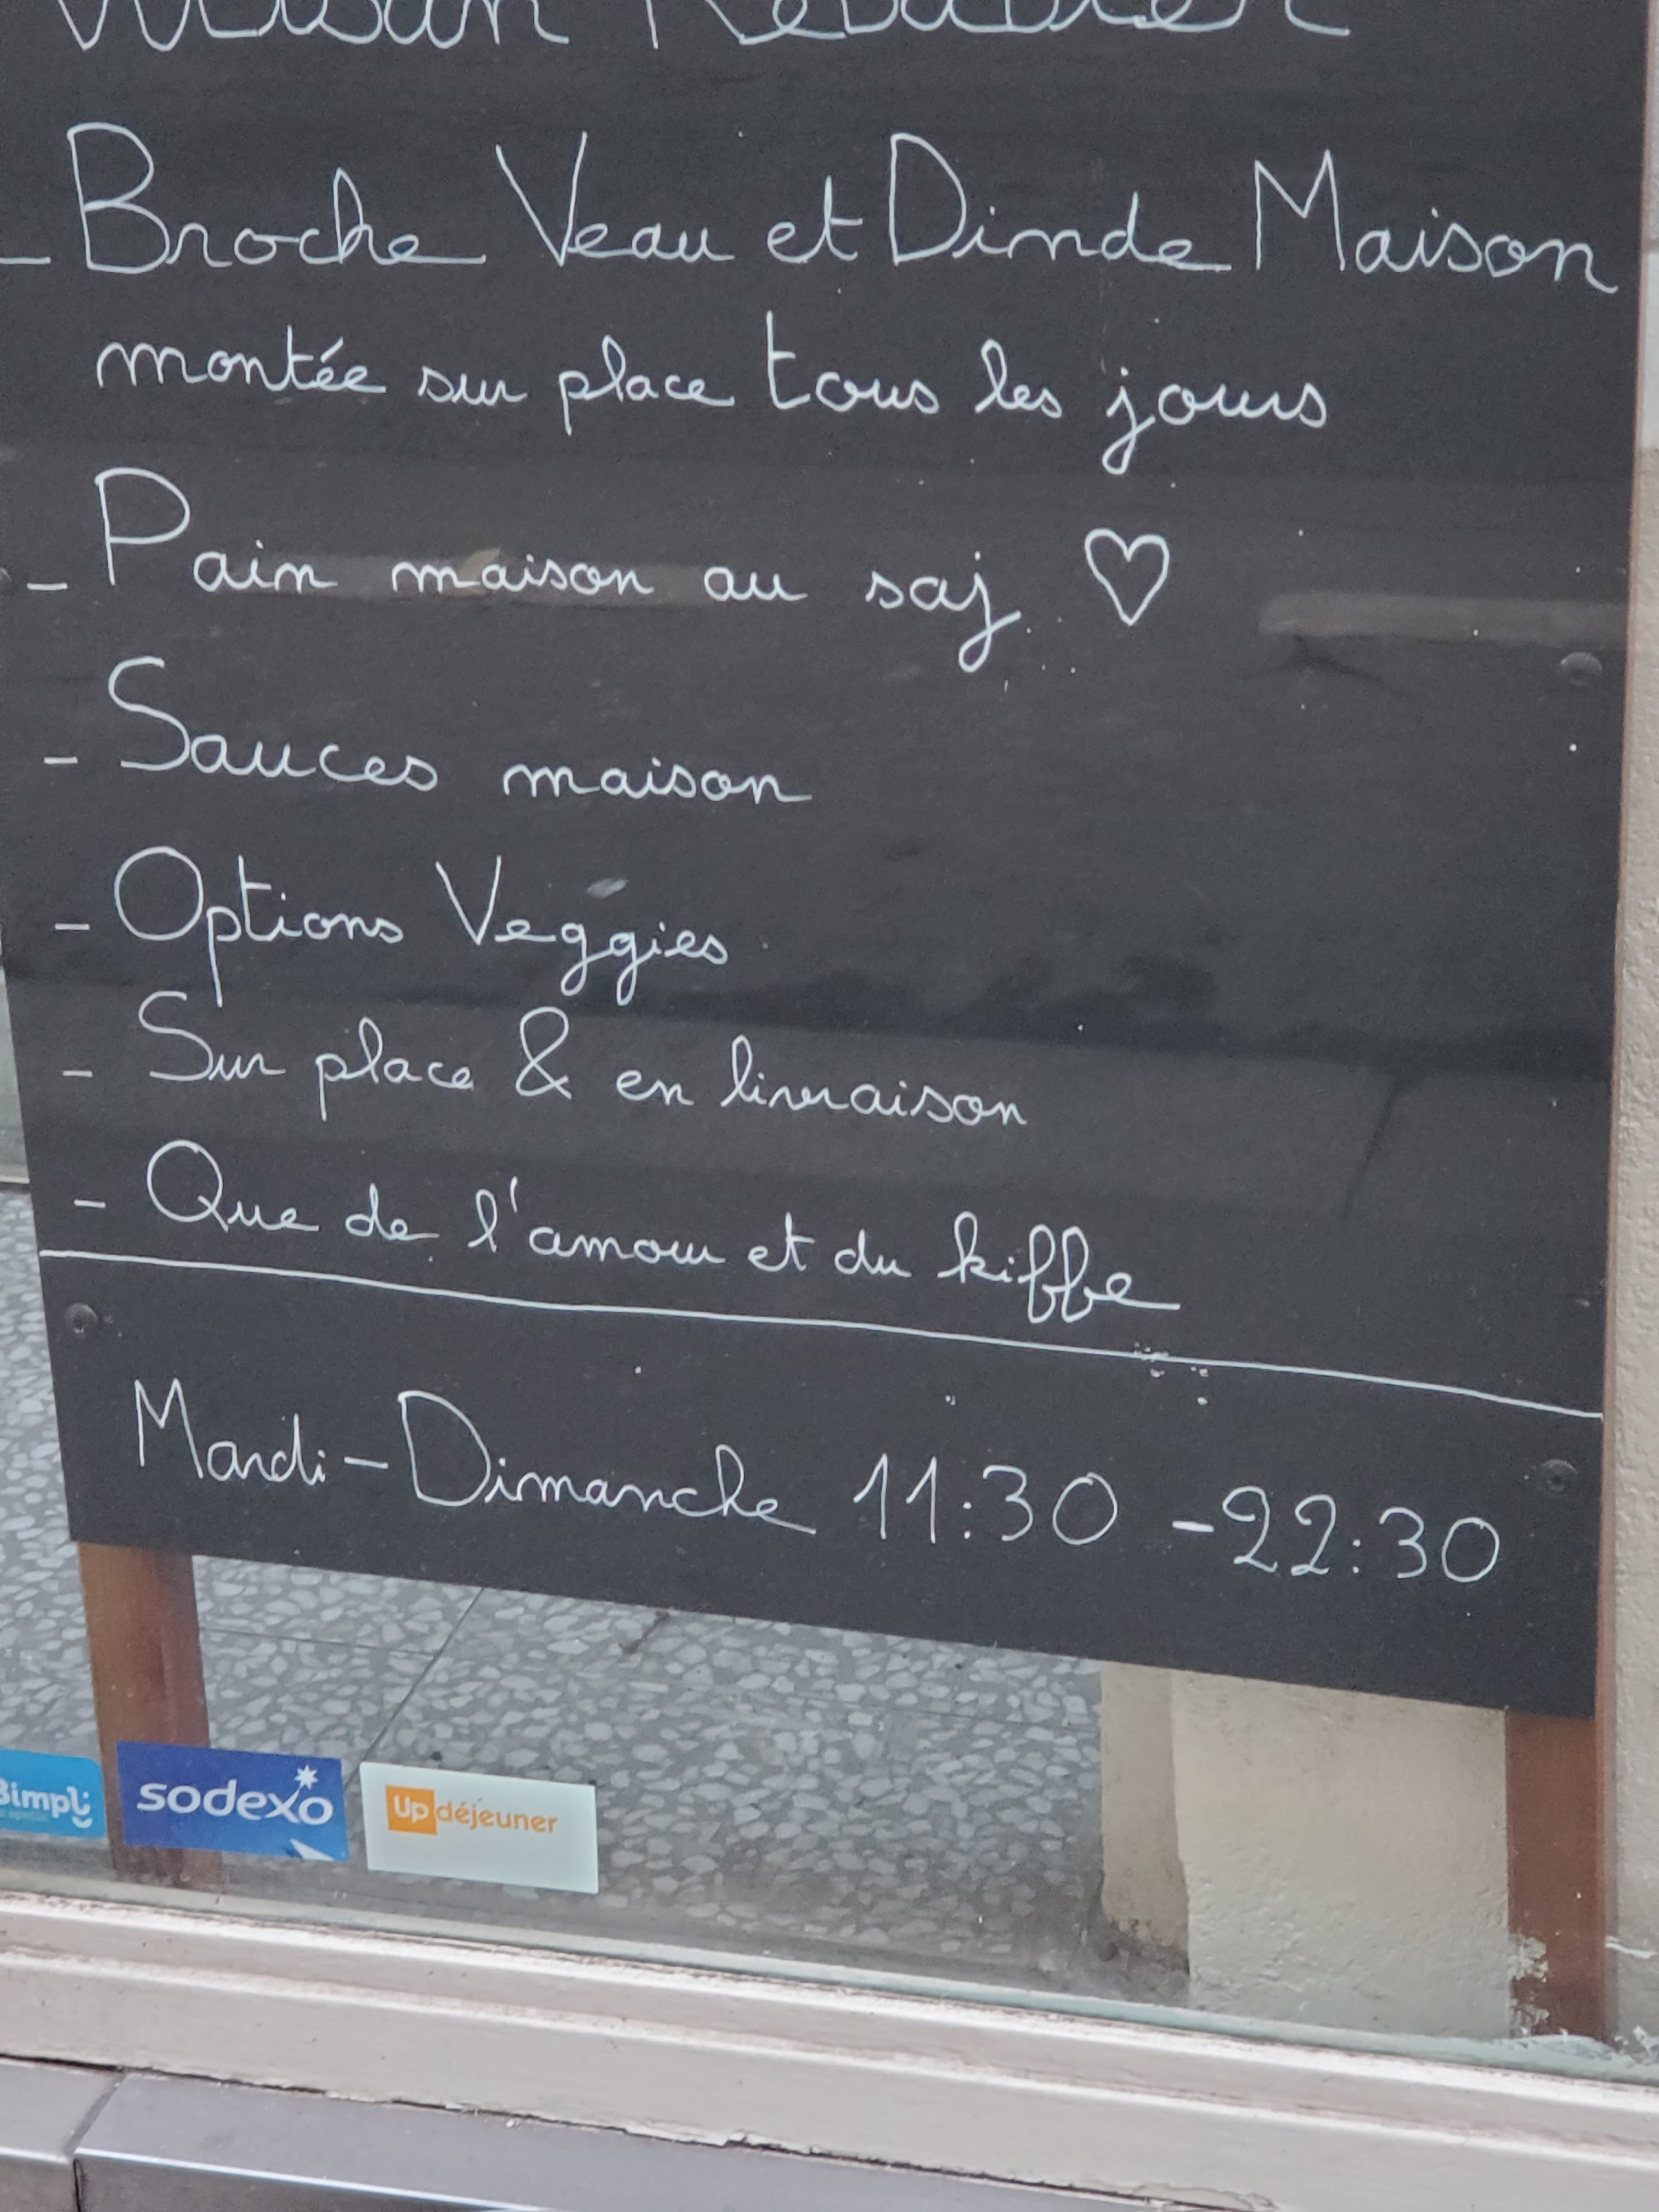 Artisan Kebabier
- Broche Veau et Dinde Maison
montée sur place tous les jours
- Pain maison au saj ♡
- Sauces maison
- Options Veggies
- Sur place & en livraison
- Que de l'amour et du kiffe
Mardi - Dimanche 11:30 - 22:30
Bimpli
sodexo
Up déjeuner